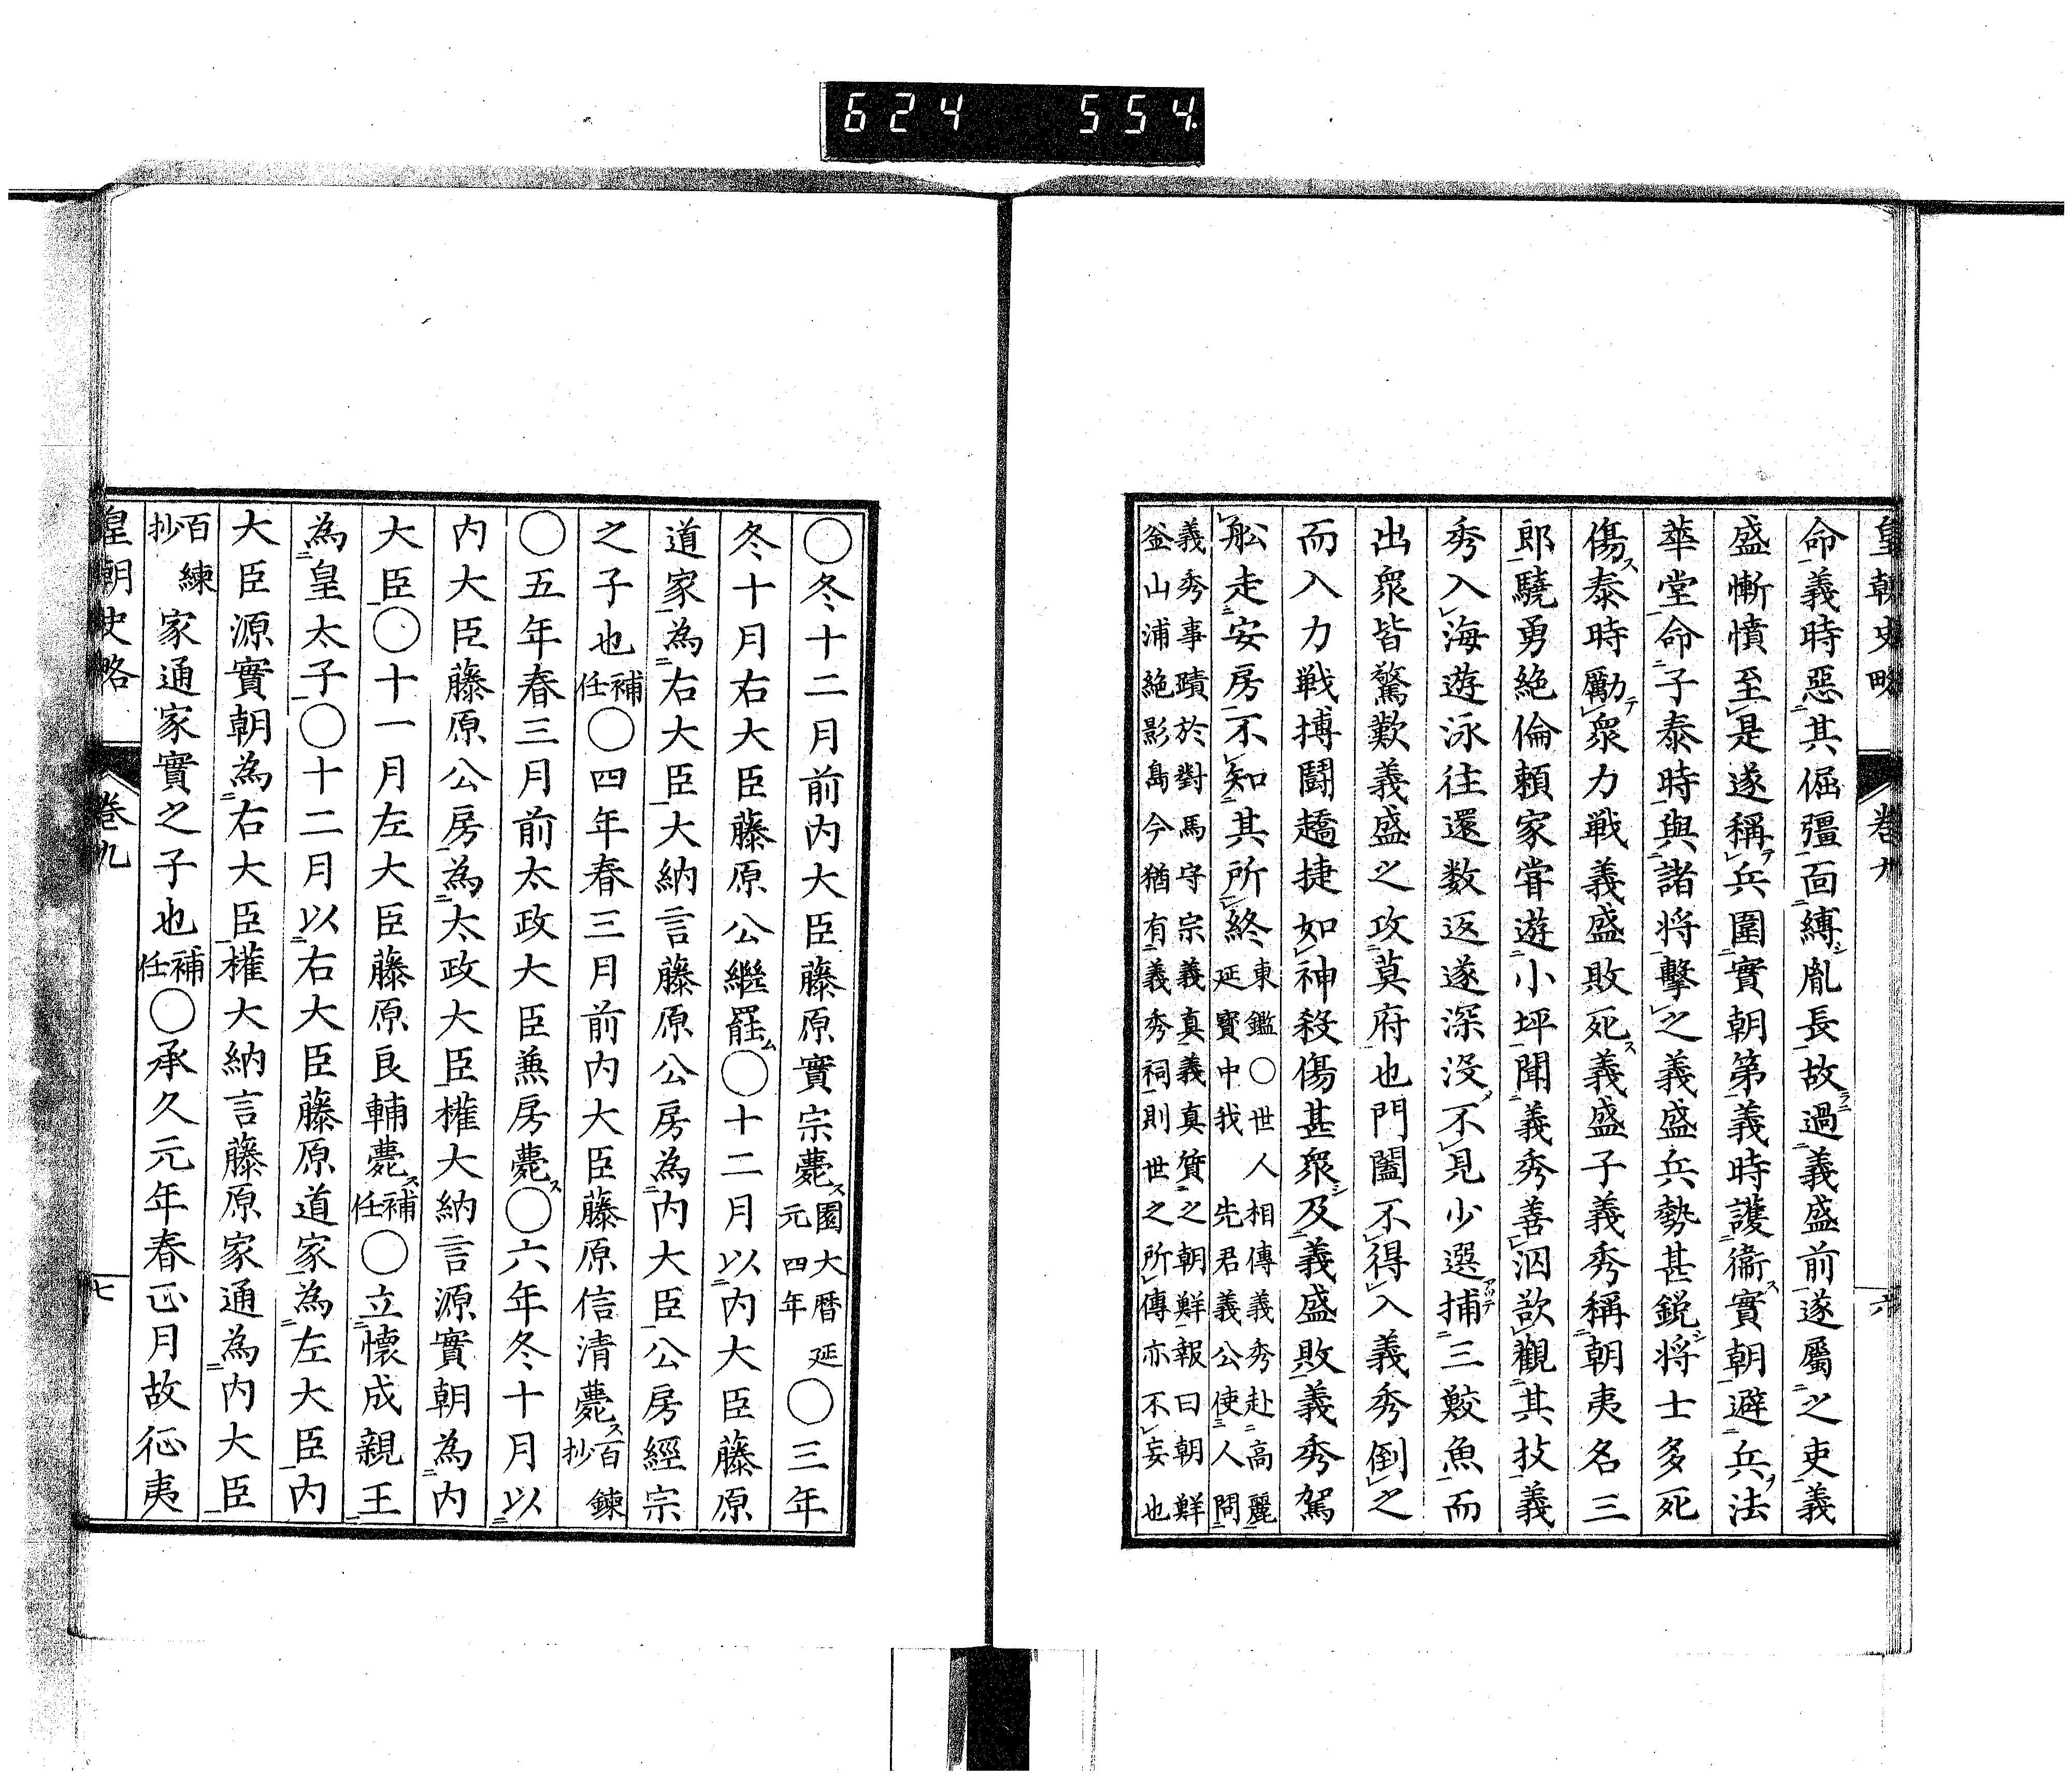 624 554
皇朝史略 巻九 六
命義時惡其倔彊面縛胤長故過義盛前遂屬之吏義
盛慚憤至是遂稱兵圍實朝第義時護衞實朝避兵法
華堂命子泰時與諸将擊之義盛兵勢甚鋭将士多死
傷泰時勵衆力戰義盛敗死義盛子義秀稱朝夷名三
郎驍勇絶倫頼家甞遊小坪聞義秀善泅欲觀其技義
秀入海遊泳往還数返遂深没不見少選捕三鮫魚而
出衆皆驚歎義盛之攻莫府也門闔不得入義秀倒之
而入力戦搏闘趫捷如神殺傷甚衆及義盛敗義秀駕
舩走安房不知其所終東鑑○世人相傳義秀赴高麗延寳中我先君義公使人問
義秀事蹟於對馬守宗義真義真質之朝鮮報曰朝鮮釜山浦絶影島今猶有義秀祠則世之所傳亦不妄也
○冬十二月前内大臣藤原實宗薨園大暦延元四年○三年
冬十月右大臣藤原公繼罷○十二月以内大臣藤原
道家為右大臣大納言藤原公房為内大臣公房經宗
之子也補任○四年春三月前内大臣藤原信清薨百鍊抄
○五年春三月前太政大臣兼房薨○六年冬十月以
内大臣藤原公房為太政大臣權大納言源實朝為内
大臣○十一月左大臣藤原良輔薨補任○立懐成親王
為皇太子○十二月以右大臣藤原道家為左大臣内
大臣源實朝為右大臣權大納言藤原家通為内大臣
百練抄家通家實之子也補任○承久元年春正月故征夷
皇朝史略 巻九 七